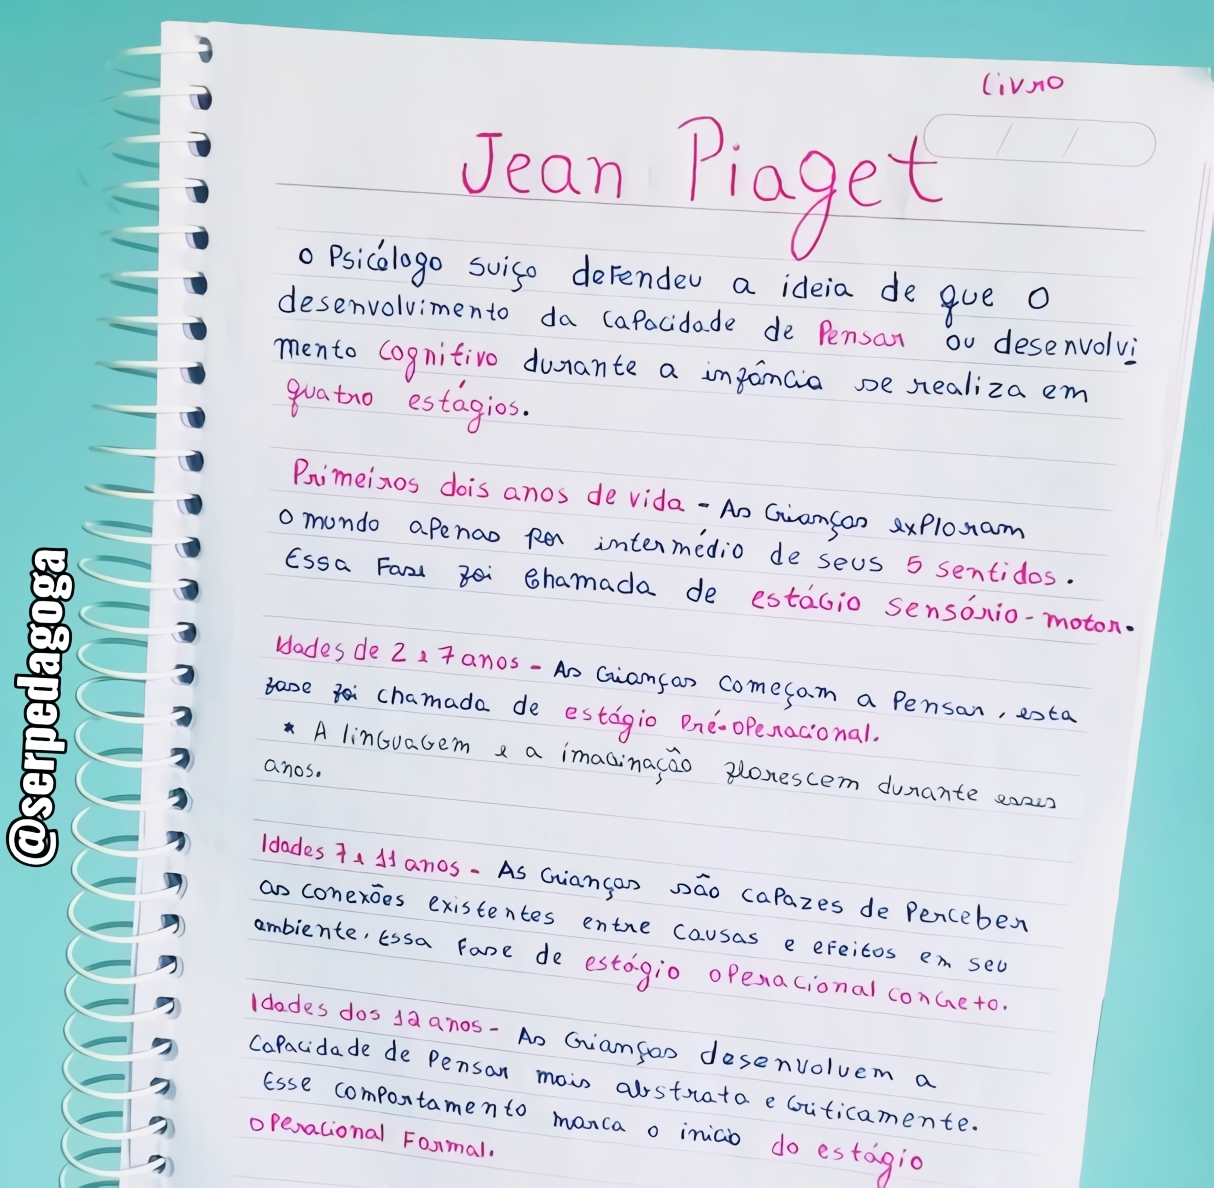 Livro
Jean Piaget
O Psicólogo suiço defendeu a ideia de que o
desenvolvimento da capacidade de Pensar ou desenvolvi
mento cognitivo durante a infância se realiza em
quatro estágios.
Primeiros dois anos de vida - As Crianças exploram
o mundo apenas por intermédio de seus 5 sentidos.
Essa Fase foi chamada de estágio sensório-motor.
Idades de 2 e 7 anos - As Crianças começam a Pensar, esta
fase foi chamada de estágio Pré-operacional.
* A linguagem e a imaginação florescem durante esses
anos.
Idades 7 e 11 anos - As Crianças são capazes de Perceber
as conexões existentes entre causas e efeitos em seu
ambiente. Essa Fase de estágio operacional concreto.
Idades dos 12 anos - As Crianças desenvolvem a
capacidade de pensar mais abstrata e criticamente.
Esse comportamento marca o inicio do estágio
operacional Formal.
@serpedagoga